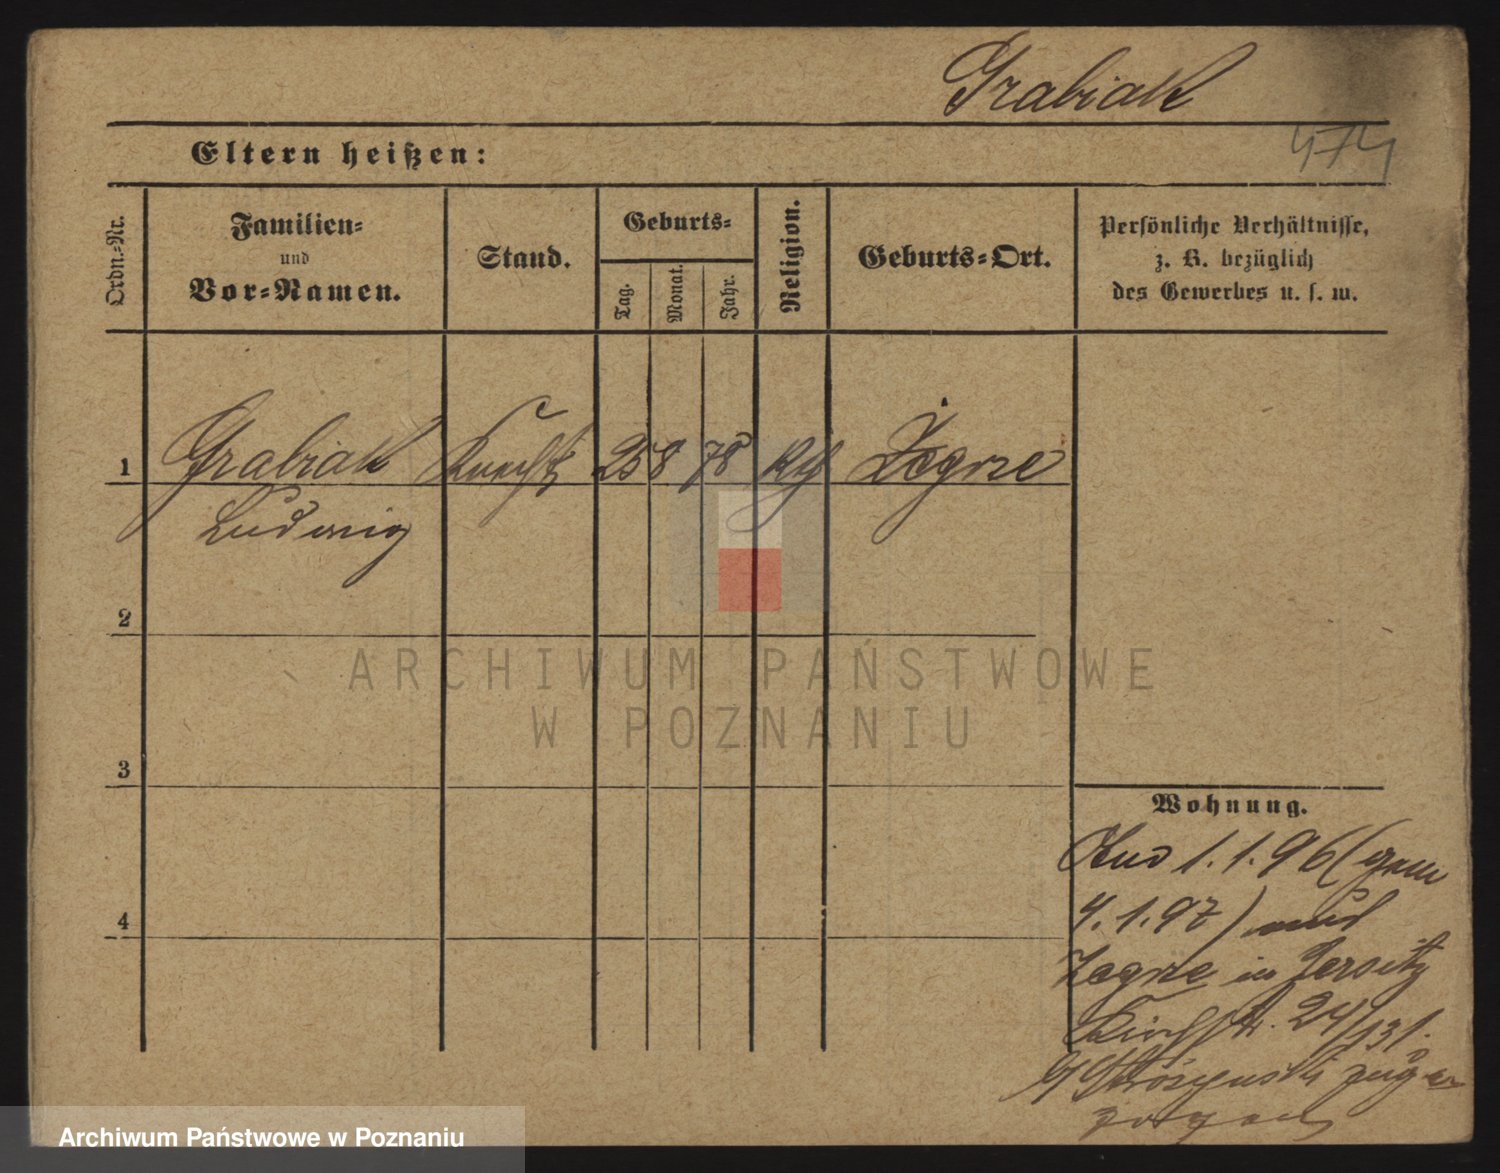 Grabiak
Eltern heißen:
474
Ordn.-Nr.
Familien-
und
Vor-Namen.
Stand.
Geburts-
Tag.
Monat.
Jahr.
Religion.
Geburts-Ort.
Persönliche Verhältnisse,
z. B. bezüglich
des Gewerbes u. s. w.
1 Grabiak Knecht 25 8 78 Kth Żegrze
Ludwig
2
3
4
Wohnung.
1.1.96 (gem
4.1.97) aus
Żegrze in Jersitz
Kirchstr. 24/131.
zugezogen
ARCHIWUM PAŃSTWOWE
W POZNANIU
Archiwum Państwowe w Poznaniu